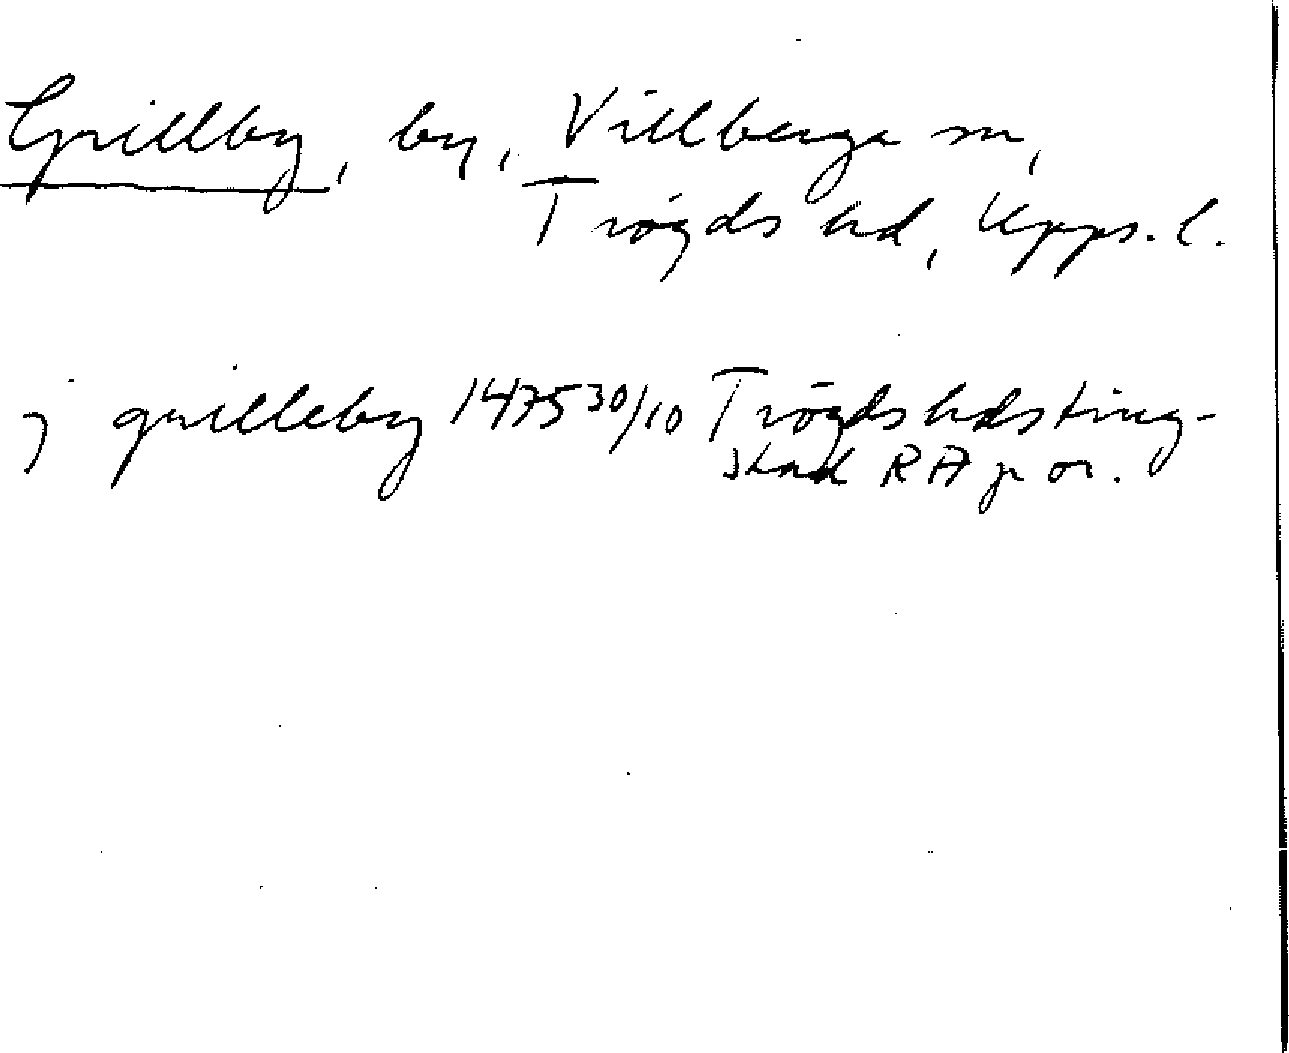 Grillby, by, Villberga sn,
Trögds hd, Upps. l.
j grilleby 1475 30/10 Trögds hds ting-
stad RA p or.